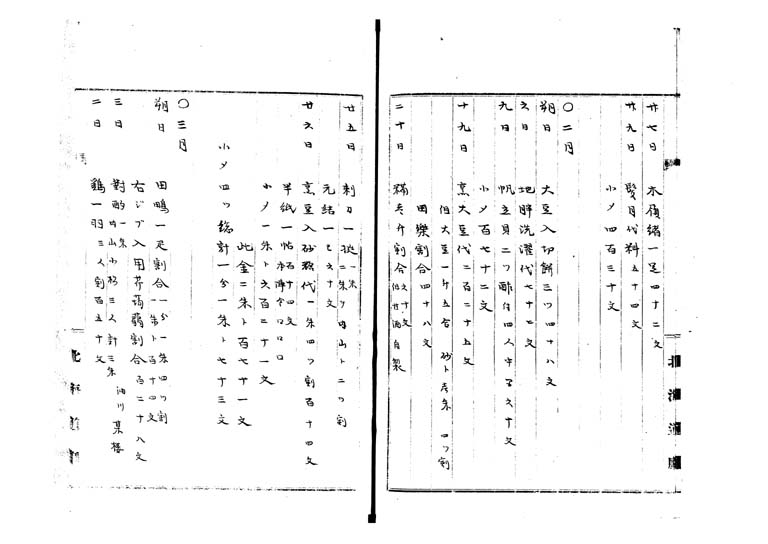 廿七日 木履緒一足四十二文
廿九日 髪月代料五十四文
小〆四百三十文
〇二月
朔日 大豆入切餅三ツ四十八文
六日 地胖洗濯代七十七文
九日 帆立貝二ツ酢付四人
小〆百七十二文
十九日 烹大豆代二百二十五文
但大豆一升五合 四ツ割
田樂割合四十八文
二十日 割合六十文
廿五日 剃刀一挺 二ツ割
元結一ヒ六十文
廿六日 烹豆入砂糖代一朱四ツ割百十四文
半紙一帖百十四文
小〆一朱ト六百二十一文
此金二朱ト百七十一文
小〆四ツ総計一分一朱ト七十三文
〇三月
朔日 田鴨一足割合一分一朱四ツ割 百十四文
右ジブ入用芹蒟蒻割合百二十八文
三日 對酌一朱 三人計三朱
二日 鶏一羽三人割百五十文